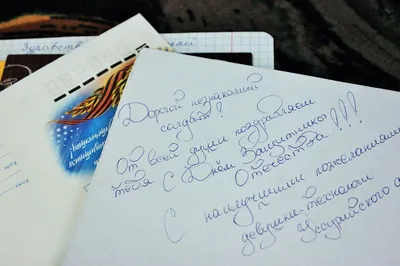 Здравств
Дорогой незнакомый
солдат!
От всей души поздравляем
тебя с Днём Защитника
Отечества!!!
С наилучшими пожеланиями
девушки-технологи
Уссурийского